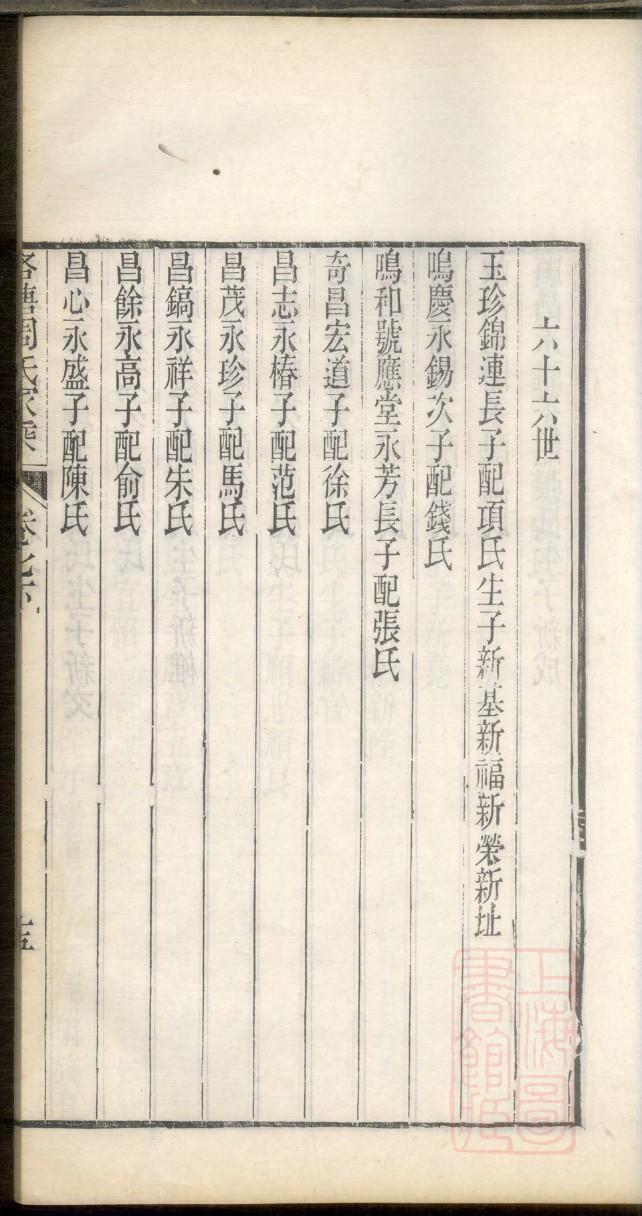 六十六世
玉珍錦連長子配項氏生子新基新福新榮新址
鳴慶永錫次子配錢氏
鳴和號應堂永芳長子配張氏
奇昌宏道子配徐氏
昌志永椿子配范氏
昌茂永珍子配馬氏
昌鎬永祥子配朱氏
昌餘永高子配俞氏
昌心永盛子配陳氏
塘周氏家乘 卷之下
上海圖書館藏